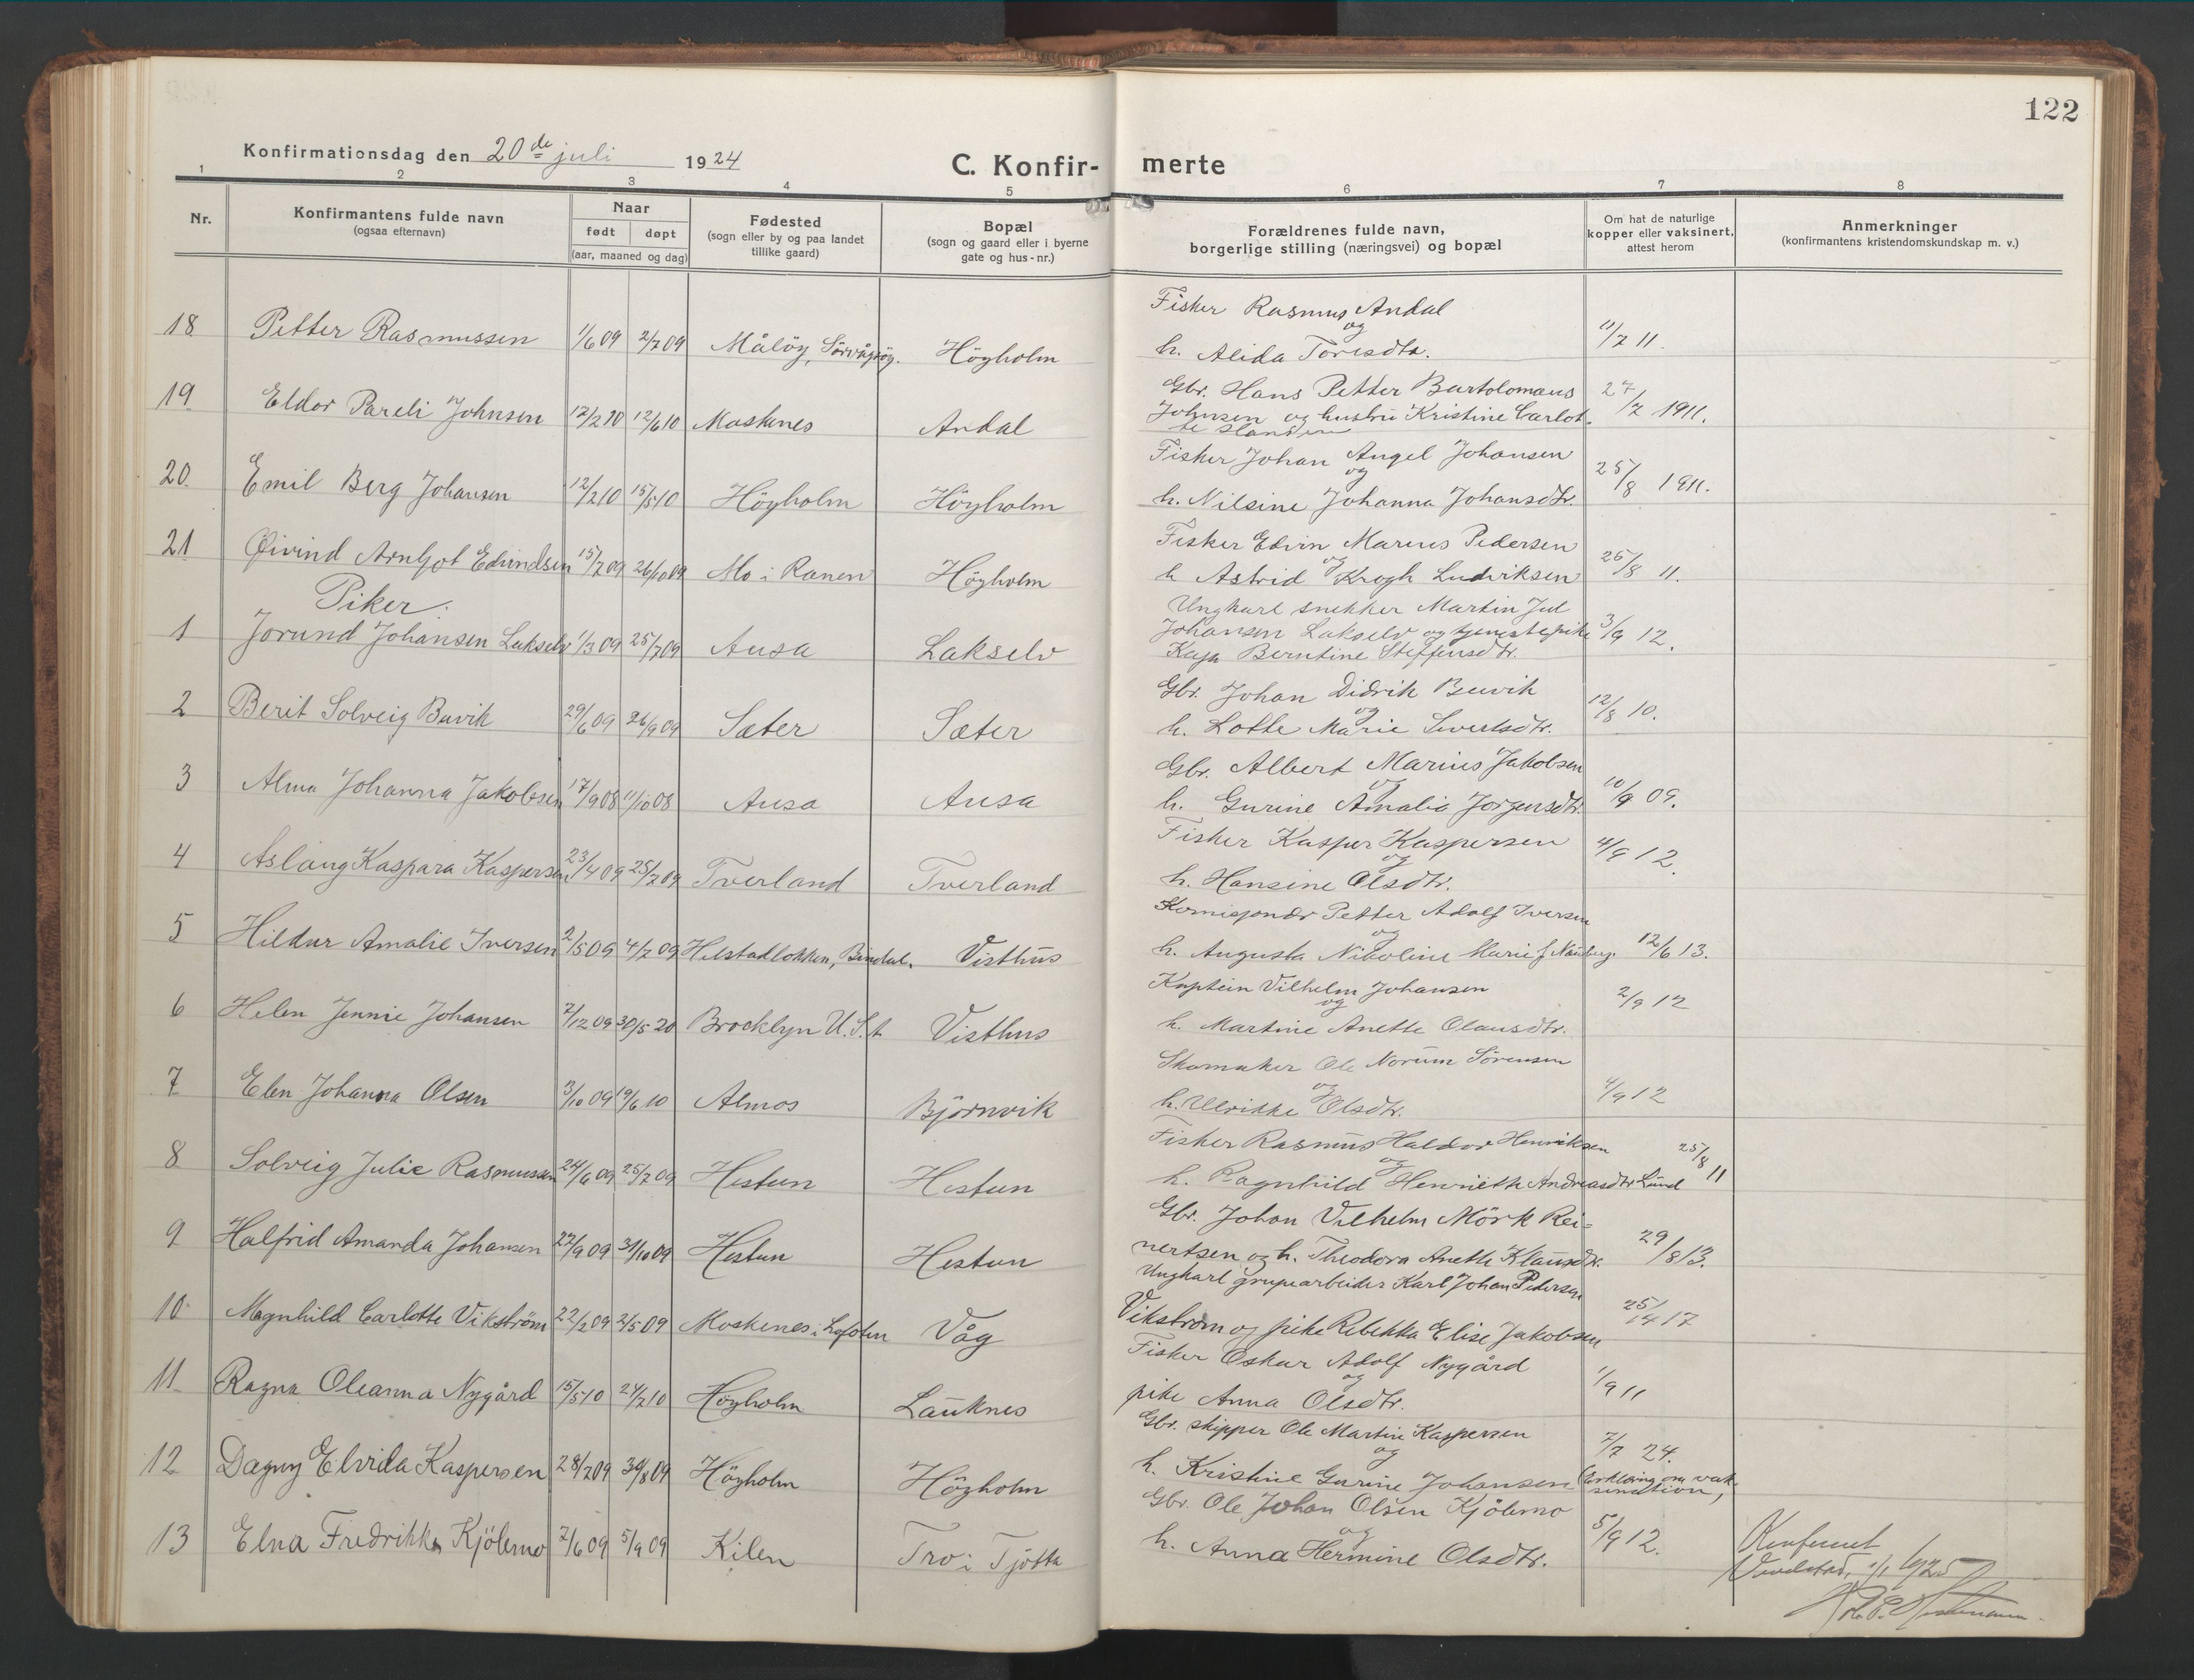 122
Konfirmationsdag den 20de juli 1924
C. Konfir- merte
1 2 3 4 5 6 7 8
Nr.
Konfirmantens fulde navn
(ogsaa efternavn)
Naar
født døpt
(aar, maaned og dag)
Fødested
(sogn eller by og paa landet
tillike gaard)
Bopæl
(sogn og gaard eller i byerne
gate og hus-nr.)
Forældrenes fulde navn,
borgerlige stilling (næringsvei) og bopæl
Om hat de naturlige
kopper eller vaksinert,
attest herom
Anmerkninger
(konfirmantens kristendomskundskap m. v.)
18 Petter Rasmussen 1/6 09 2/7 09 Måløy, Sørvågøy. Höyholm
Fisker Rasmus Andal
og
h. Alida Toresdtr.
11/7 11.
19 Eldor Pareli Johnsen 17/2 10 12/6 10 Moskenes Andal
Gbr. Hans Petter Bartolomæus
Johnsen og hustru Kristine Carlot-
te
27/7 1911.
20 Emil Berg Johansen 12/2 10 15/5 10 Höyholm Höyholm
Fisker Johan Angel Johansen
og
h. Nilsine Johanna Johansdtr.
25/8 1911.
21 Øivind Arnljot Edvindsen 15/7 09 26/10 09 Mo i Ranen Höyholm
Fisker Edvin Marius Pedersen
og
h Astrid Krogh Ludviksen
25/8 11.
Piker.
1 Jorund Johansen Lakselv 1/3 09 25/7 09 Ausa Lakselv
Ungkarl snekker Martin Jul
Johansen Lakselv og tjenestepike
Kaja Berntine Steffensdtr.
3/9 12.
2 Berit Solveig Buvik 29/6 09 26/9 09 Sæter Sæter
Gbr. Johan Didrik Buvik
og
h. Lotte Marie Sivertsdtr.
12/8 10.
3 Alma Johanna Jakobsen 17/9 08 11/10 08 Ausa Ausa
Gbr. Albert Marius Jakobsen
og
h. Gurine Amalia Jørgensdtr.
10/9 09.
4 Aslaug Kaspara Kaspersen 23/4 09 25/7 09 Tverland Tverland
Fisker Kasper Kaspersen
og
h. Hansine Olsdtr.
4/9 12.
5 Hildur Amalie Iversen 2/5 09 4/7 09 Helstadlökken, Bindal. Visthus
Petter Adolf Iversen
og
h. Augusta Nikoline Marie f
12/6 13.
6 Helen Jennie Johansen 7/12 09 30/5 20 Brocklyn U.S.A. Visthus
Kaptein Vilhelm Johansen
og
h. Martine Anette Olausdtr.
2/9 12
7 Elen Johanna Olsen 3/10 09 19/6 10 Almos Björnvik
Skomaker Ole Norum Sörensen
og
h. Ulrikke Olsdtr.
4/9 12
8 Solveig Julie Rasmussen 24/6 09 25/7 09 Hestun Hestun
Fisker Rasmus Haldor Henriksen
og
h. Ragnhild Henriette Andreasdtr. Lund
25/8 11
9 Halfrid Amanda Johansen 22/9 09 31/10 09 Hestun Hestun
Gbr. Johan Vilhelm Mörk Rei=
nertsen og h. Theodora Anette Klausdtr.
29/8 13.
10 Magnhild Carlotte Vikström 22/2 09 2/5 09 Moskenes i Lofoten Våg
Ungkarl grupearbeider Karl Johan Pedersen
Vikström og pike Rebekka Elise Jakobsen
25/4 17
11 Ragna Oleanna Nygård 15/5 10 24/7 10 Höyholm Lauknes
Fisker Oskar Adolf Nygård
og
pike Anna Olsdtr.
1/9 11
12 Dagny Elvida Kaspersen 28/7 09 30/8 09 Höyholm Höyholm
Gbr. skipper Ole Martin Kaspersen
og
h. Kristine Gurine Johansen
7/7 24.
Erklæring om vak-
sination,
13 Elna Fredrikka Kjölemo 7/6 09 5/9 09 Kilen Tro i Tjötta
Gbr. Ole Johan Olsen Kjölemo
og
h. Anna Hermine Olsdtr.
5/9 12.
Konferert
1/1 1925